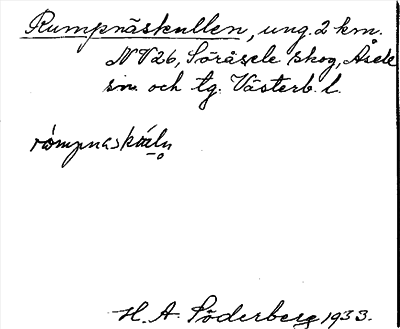 Rumpnäskullen, ung. 2 km.
NV 26, Söråsele skog, Åsele
sn. och tg. Västerb. l.
H. A. Söderberg 1933.